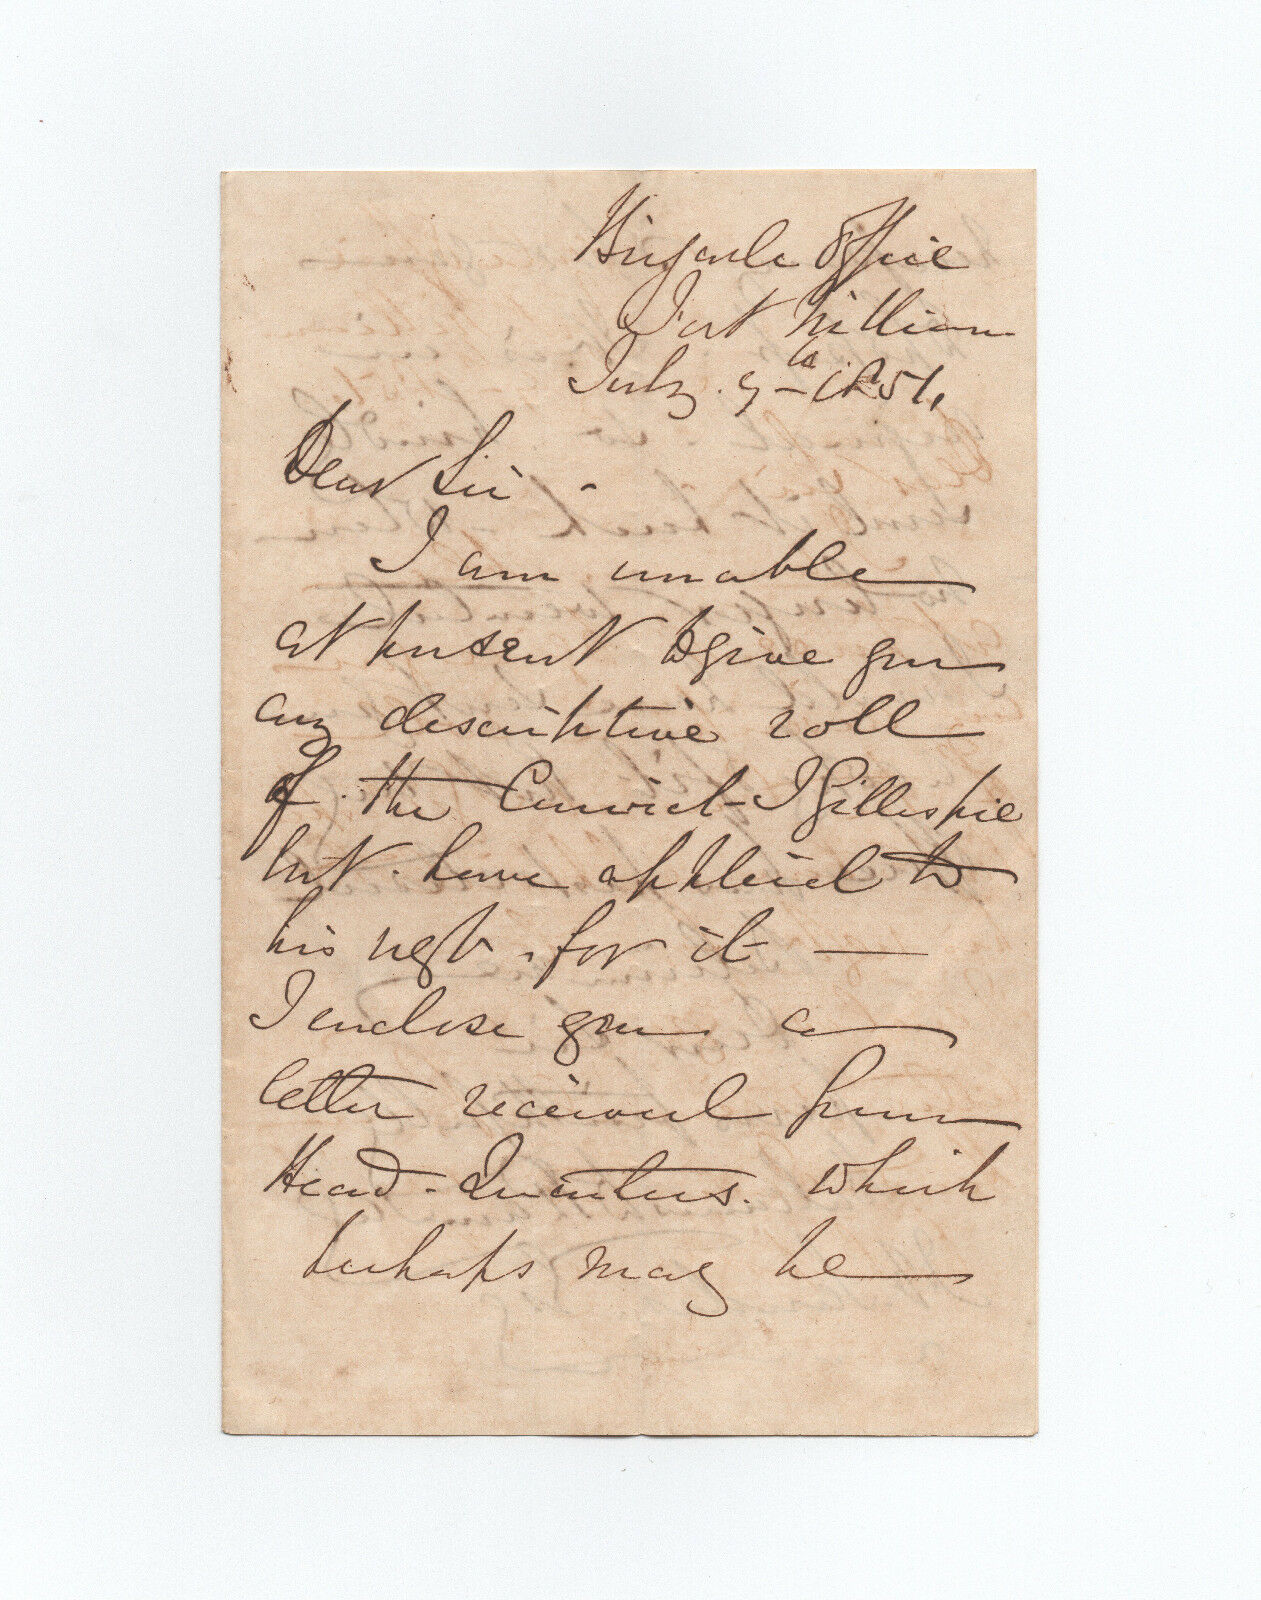 Brigade Office
Fort William
July 9th 1851,
Dear Sir -
I am unable
at present to give you
any descriptive roll
of the Convict - J Gillespie
but have applied to
his regt. for it —
I enclose you a
letter received from
Head-Quarters. which
perhaps may be